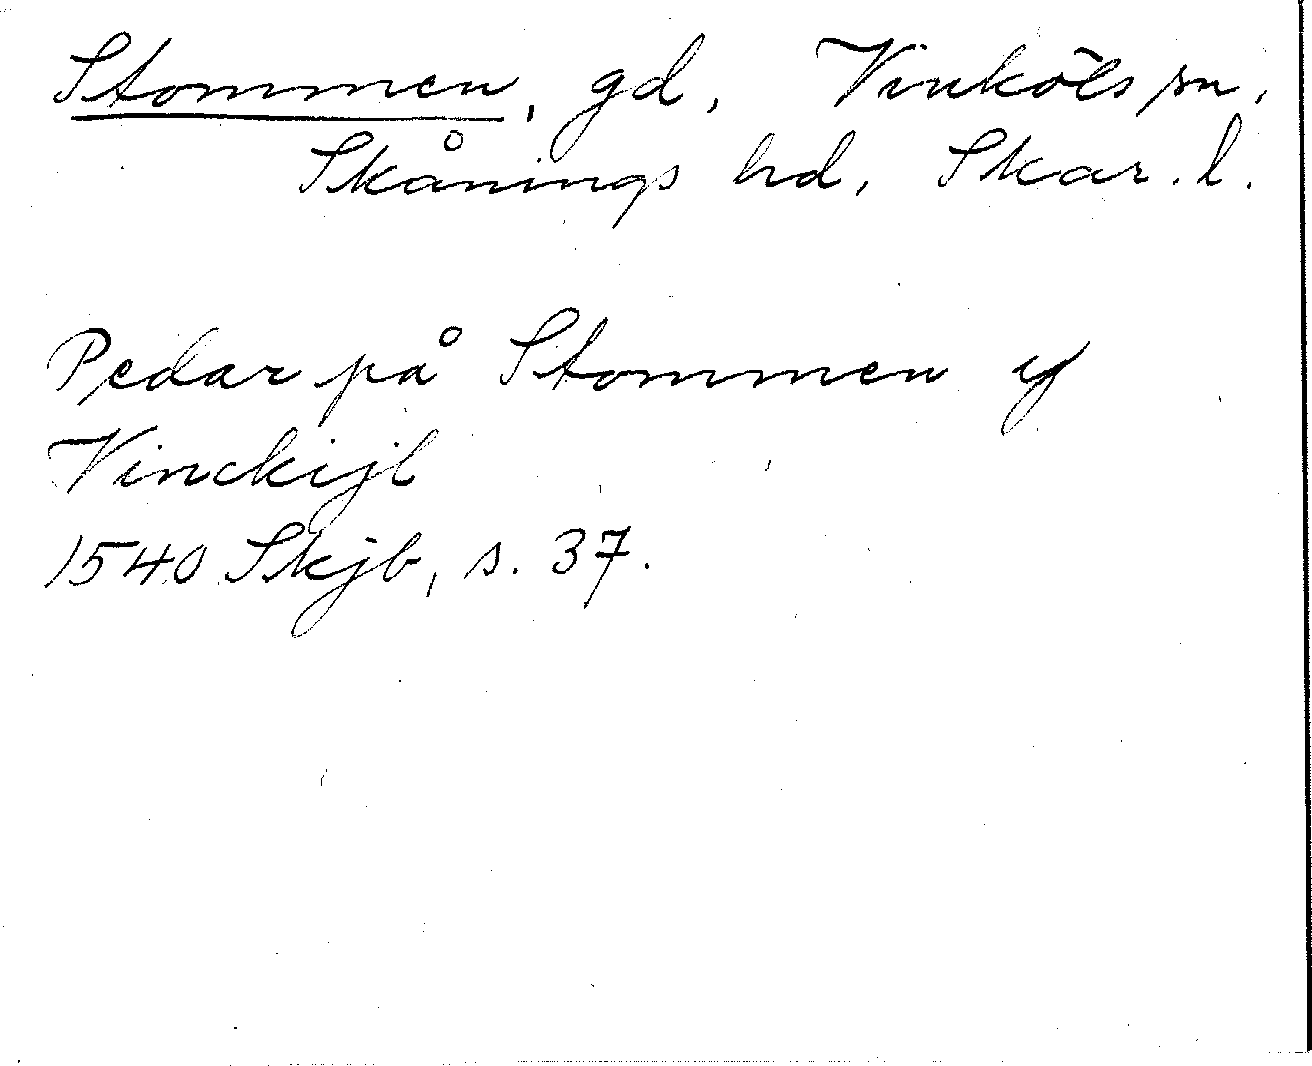 Stommen, gd, Vinköls sn,
Skånings hd, Skar. l.
Pedar på Stommen y
Vinckijl
1540 Skjb, s. 37.